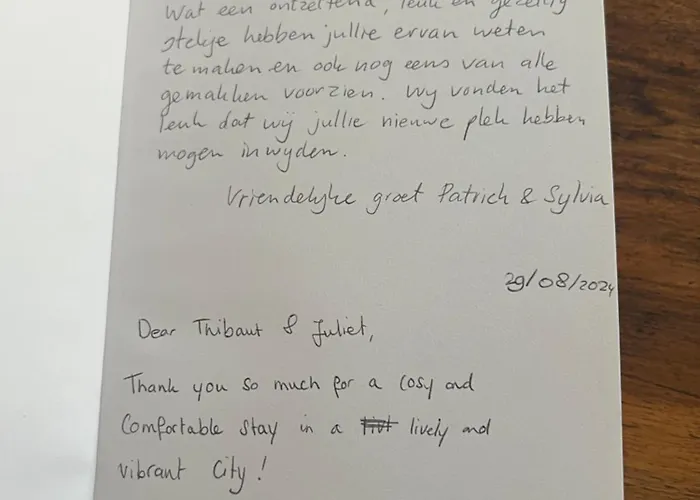 Wat een ontzettend, leuk en gezellig
stekje hebben jullie ervan weten
te maken en ook nog eens van alle
gemakken voorzien. Wy vonden het
leuk dat wij jullie nieuwe plek hebben
mogen inwyden.
Vriendelyke groet Patrick & Sylvia
29/08/2024
Dear Thibaut & Juliet,
Thank you so much for a cosy and
Comfortable stay in a lively and
vibrant City!